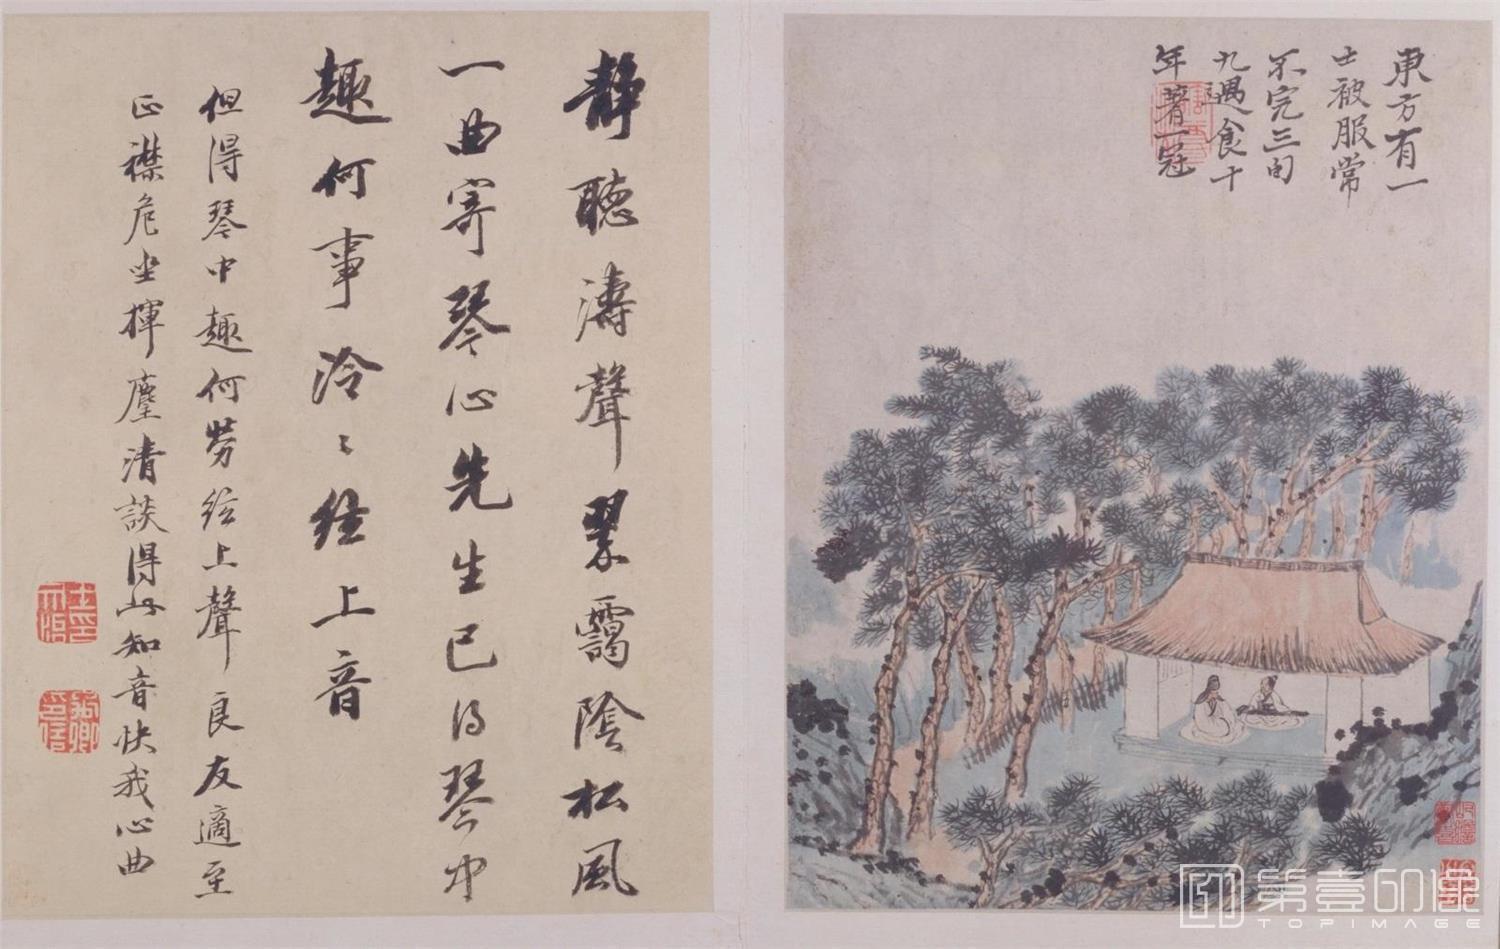 東方有一
士被服常
不完三旬
九遇食十
年著一冠
靜聽濤聲翠靄陰松風
一曲寄琴心先生已得琴中
趣何事泠〻絃上音
但得琴中趣何勞絃上聲良友適至
正襟危坐揮麈清談得此知音快我心曲
第壹印像
TOPIMAGE